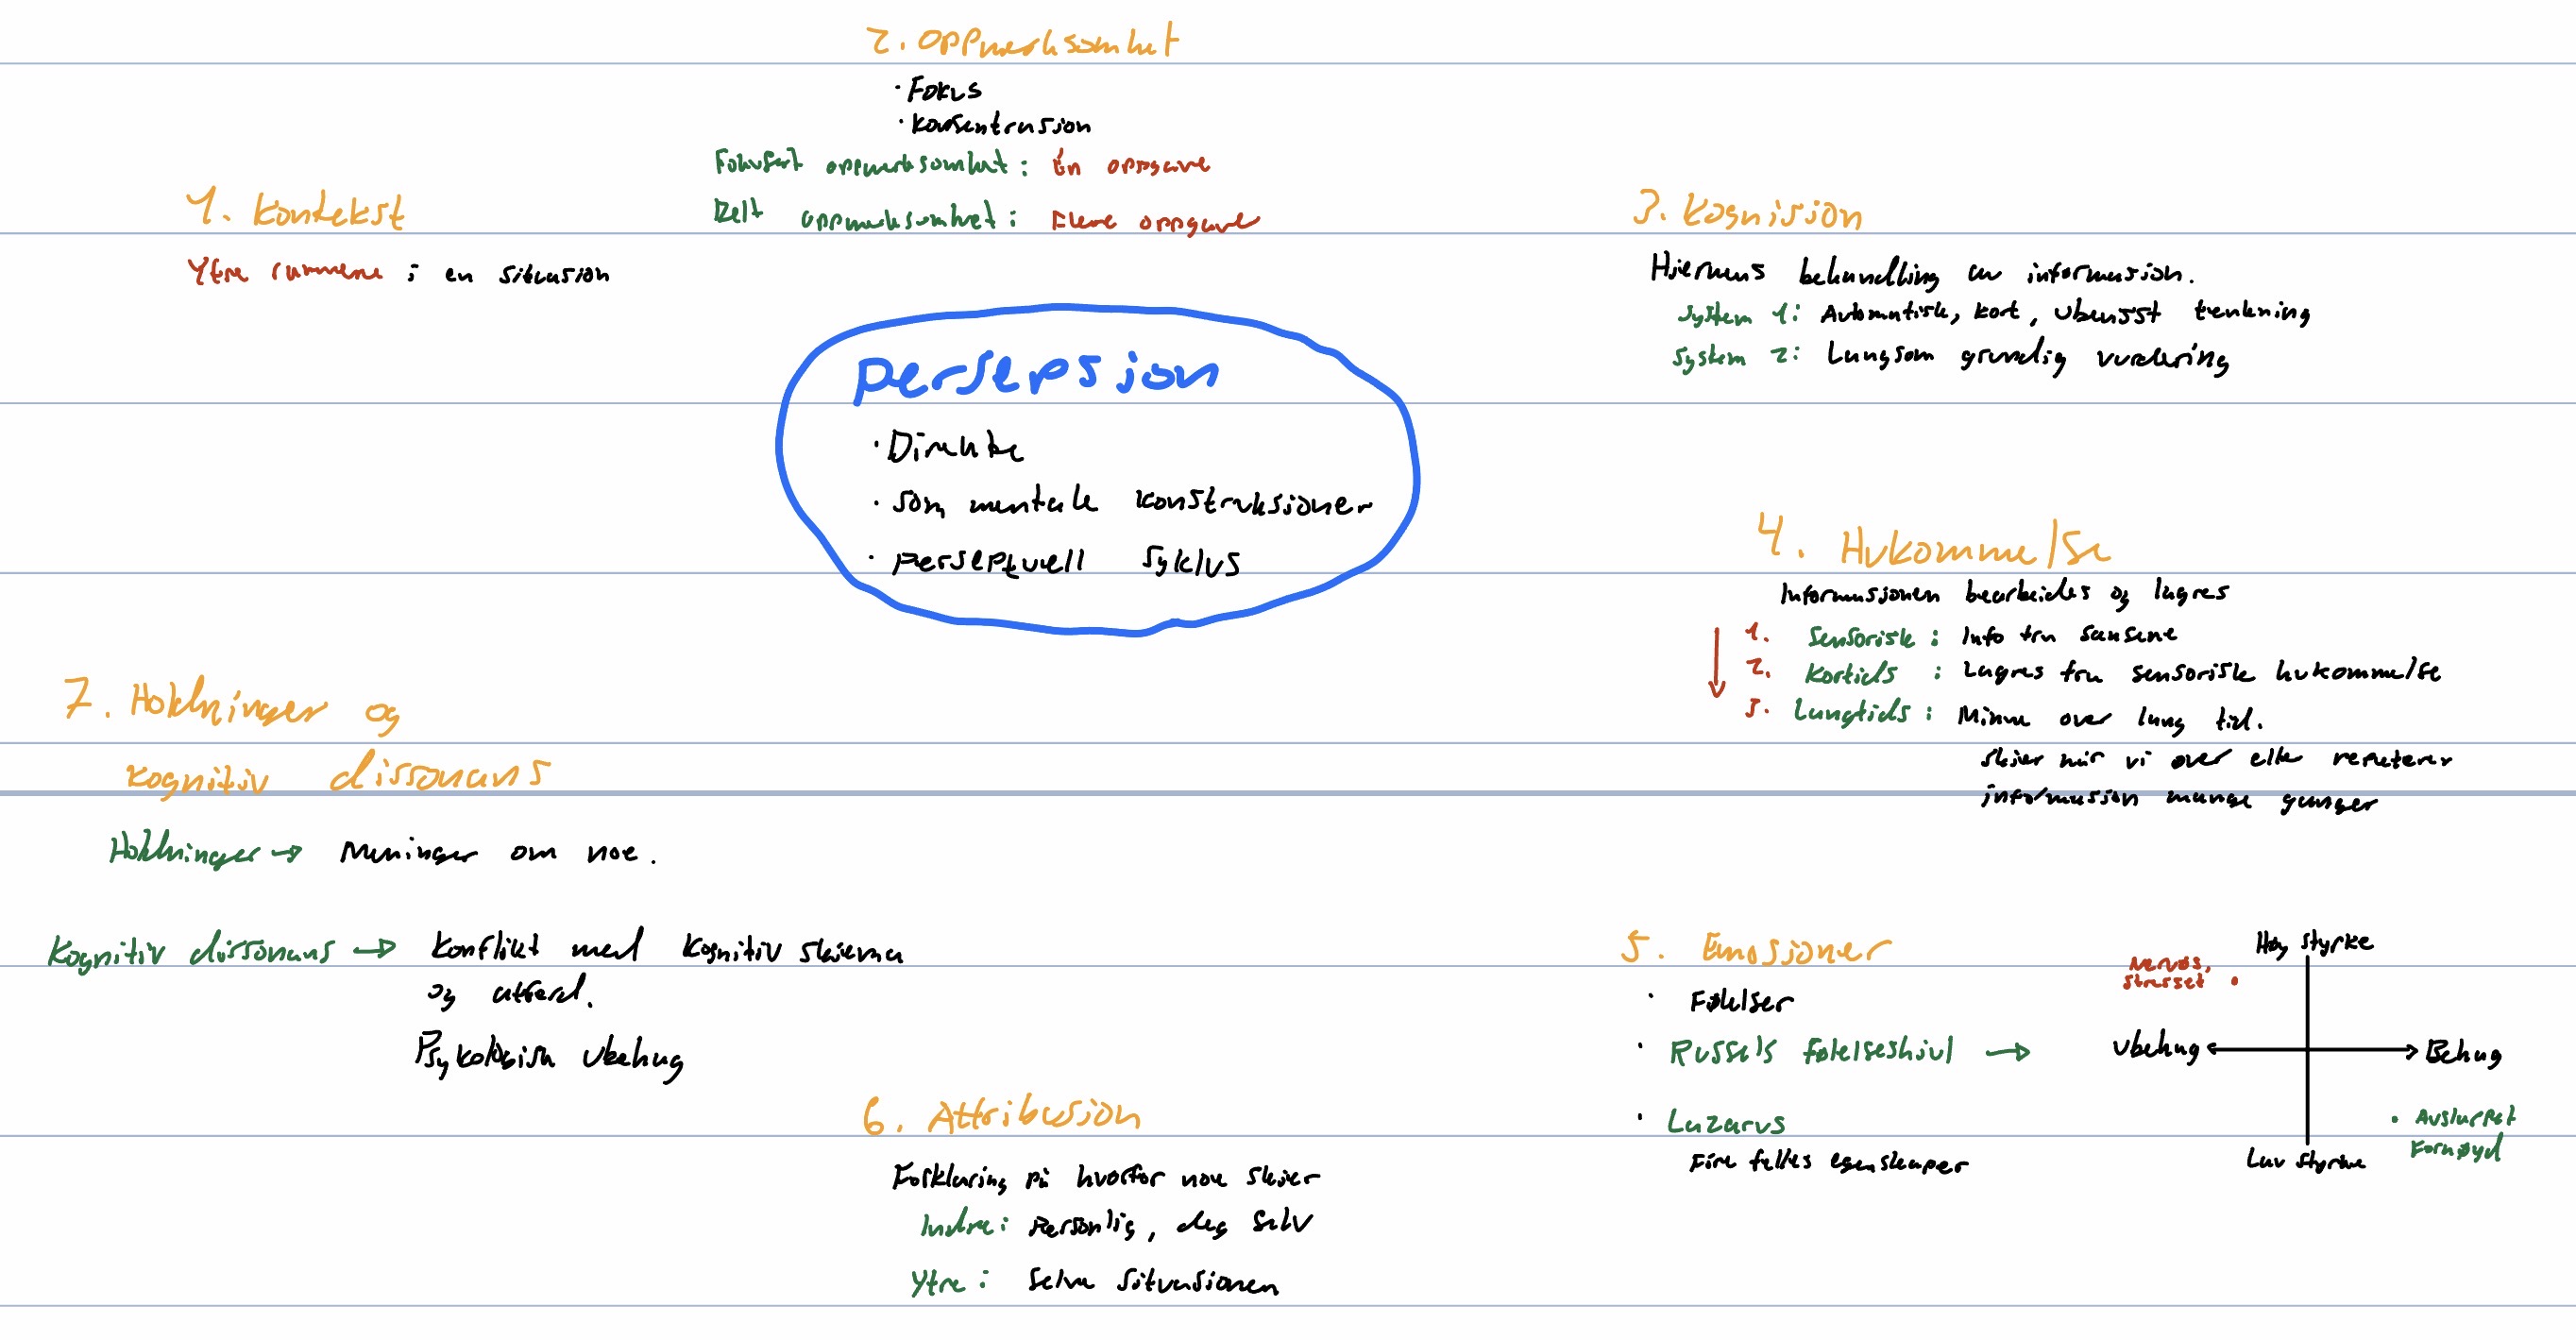 2. Oppmerksomhet
· Fokus
· Konsentrasjon
Fokusert oppmerksomhet: Én oppgave
Delt oppmerksomhet: Flere oppgave
1. Kontekst
Ytre rammene i en situasjon
3. Kognisjon
Hjernens behandling av informasjon.
System 1: Automatisk, kort, ubevisst tenkning
System 2: Langsom grundig vurdering
Persepsjon
· Direkte
· Som mentale konstruksjoner
· Perseptuell syklus
4. Hukommelse
Informasjonen bearbeides og lagres
1. Sensorisk: Info fra sansene
2. Kortids: Lagres fra sensorisk hukommelse
3. Langtids: Minne over lang tid.
Skjer når vi øver eller repeterer
informasjon mange ganger
7. Holdninger og
kognitiv dissonans
Holdninger → Meninger om noe.
Kognitiv dissonans → Konflikt med kognitiv skjema
og atferd.
Psykologisk ubehag
5. Emosjoner
· Følelser
· Russels følelseshjul →
· Lazarus
Fire felles egenskaper
Høy styrke
Nervøs,
stresset ·
Ubehag ↔ Behag
· Avslappet
Fornøyd
Lav styrke
6. Attribusjon
Forklaring på hvorfor noe skjer
Indre: Personlig, deg selv
Ytre: Selve situasjonen